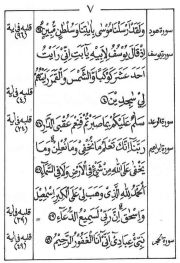 ٧
سورة هود
وَلَقَدْ أَرْسَلْنَا مُوسَىٰ بِآيَاتِنَا وَسُلْطَانٍ مُبِينٍ
قلبه آية (٩٦)
سورة يوسف
إِذْ قَالَ يُوسُفُ لِأَبِيهِ يَا أَبَتِ إِنِّي رَأَيْتُ
أَحَدَ عَشَرَ كَوْكَبًا وَالشَّمْسَ وَالْقَمَرَ رَأَيْتُهُمْ
لِي سَاجِدِينَ
قلبه آية (٤)
سورة الرعد
سَلَامٌ عَلَيْكُمْ بِمَا صَبَرْتُمْ فَنِعْمَ عُقْبَى الدَّارِ
قلبه آية (٢٤)
سورة إبراهيم
رَبَّنَا إِنَّكَ تَعْلَمُ مَا نُخْفِي وَمَا نُعْلِنُ وَمَا
يَخْفَىٰ عَلَى اللَّهِ مِنْ شَيْءٍ فِي الْأَرْضِ وَلَا فِي السَّمَاءِ
الْحَمْدُ لِلَّهِ الَّذِي وَهَبَ لِي عَلَى الْكِبَرِ إِسْمَاعِيلَ
وَإِسْحَاقَ إِنَّ رَبِّي لَسَمِيعُ الدُّعَاءِ
قلبه آية (٣٩)
نَبِّئْ عِبَادِي أَنِّي أَنَا الْغَفُورُ الرَّحِيمُ
قلبه آية (٤٩)